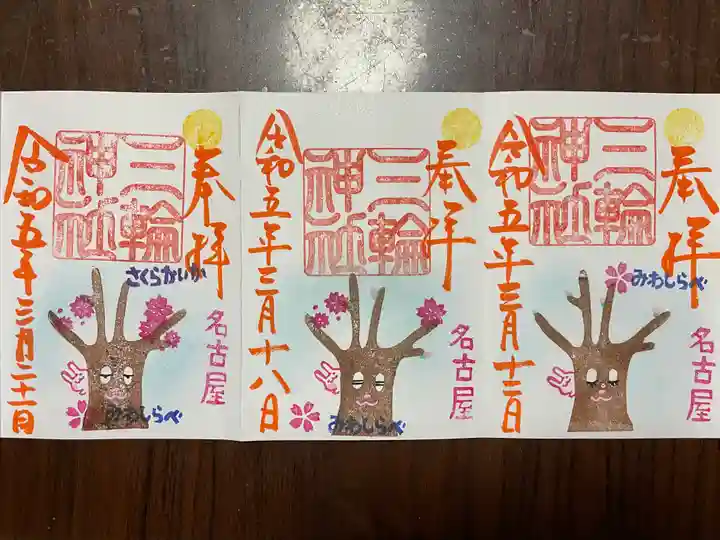 奉拝
三輪
神社
令和五年三月十二日
みわしらべ
名古屋
奉拝
三輪
神社
令和五年三月十八日
名古屋
みわしらべ
奉拝
三輪
神社
令和五年三月二十一日
さくらかいか
名古屋
みわしらべ